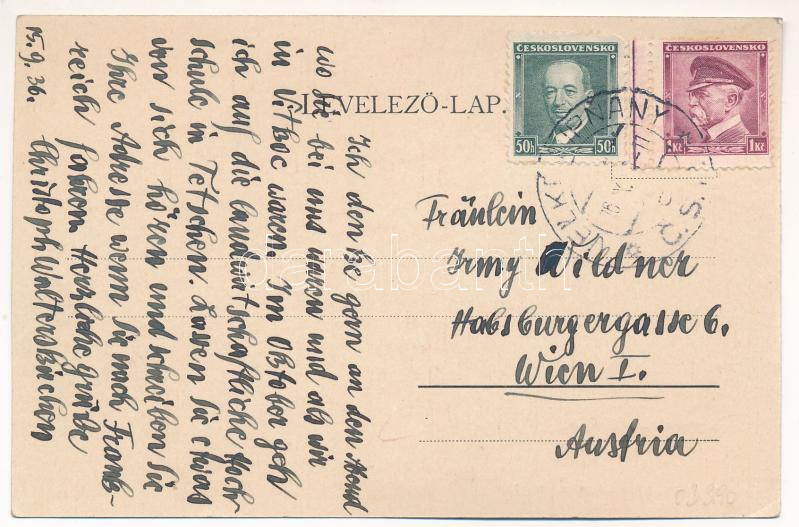 LEVELEZŐ-LAP.
ČESKOSLOVENSKO
50h 50h
ČESKOSLOVENSKO
1Kč 1Kč
Fräulein
Irmy Wildner
Habsburgergasse 6.
Wien I.
Austria
Ich denke gern an den Abend
wo Sie bei uns waren und als wir
in waren. Im Oktober geh
ich auf die landwirtschaftliche Hoch
schule in Tetschen. Lassen Sie etwas
von sich hören und schreiben Sie
Ihre Adresse wenn Sie nach Frank-
reich fahren Herzliche Grüße
Christoph
15.9.36.
darabanth
03390